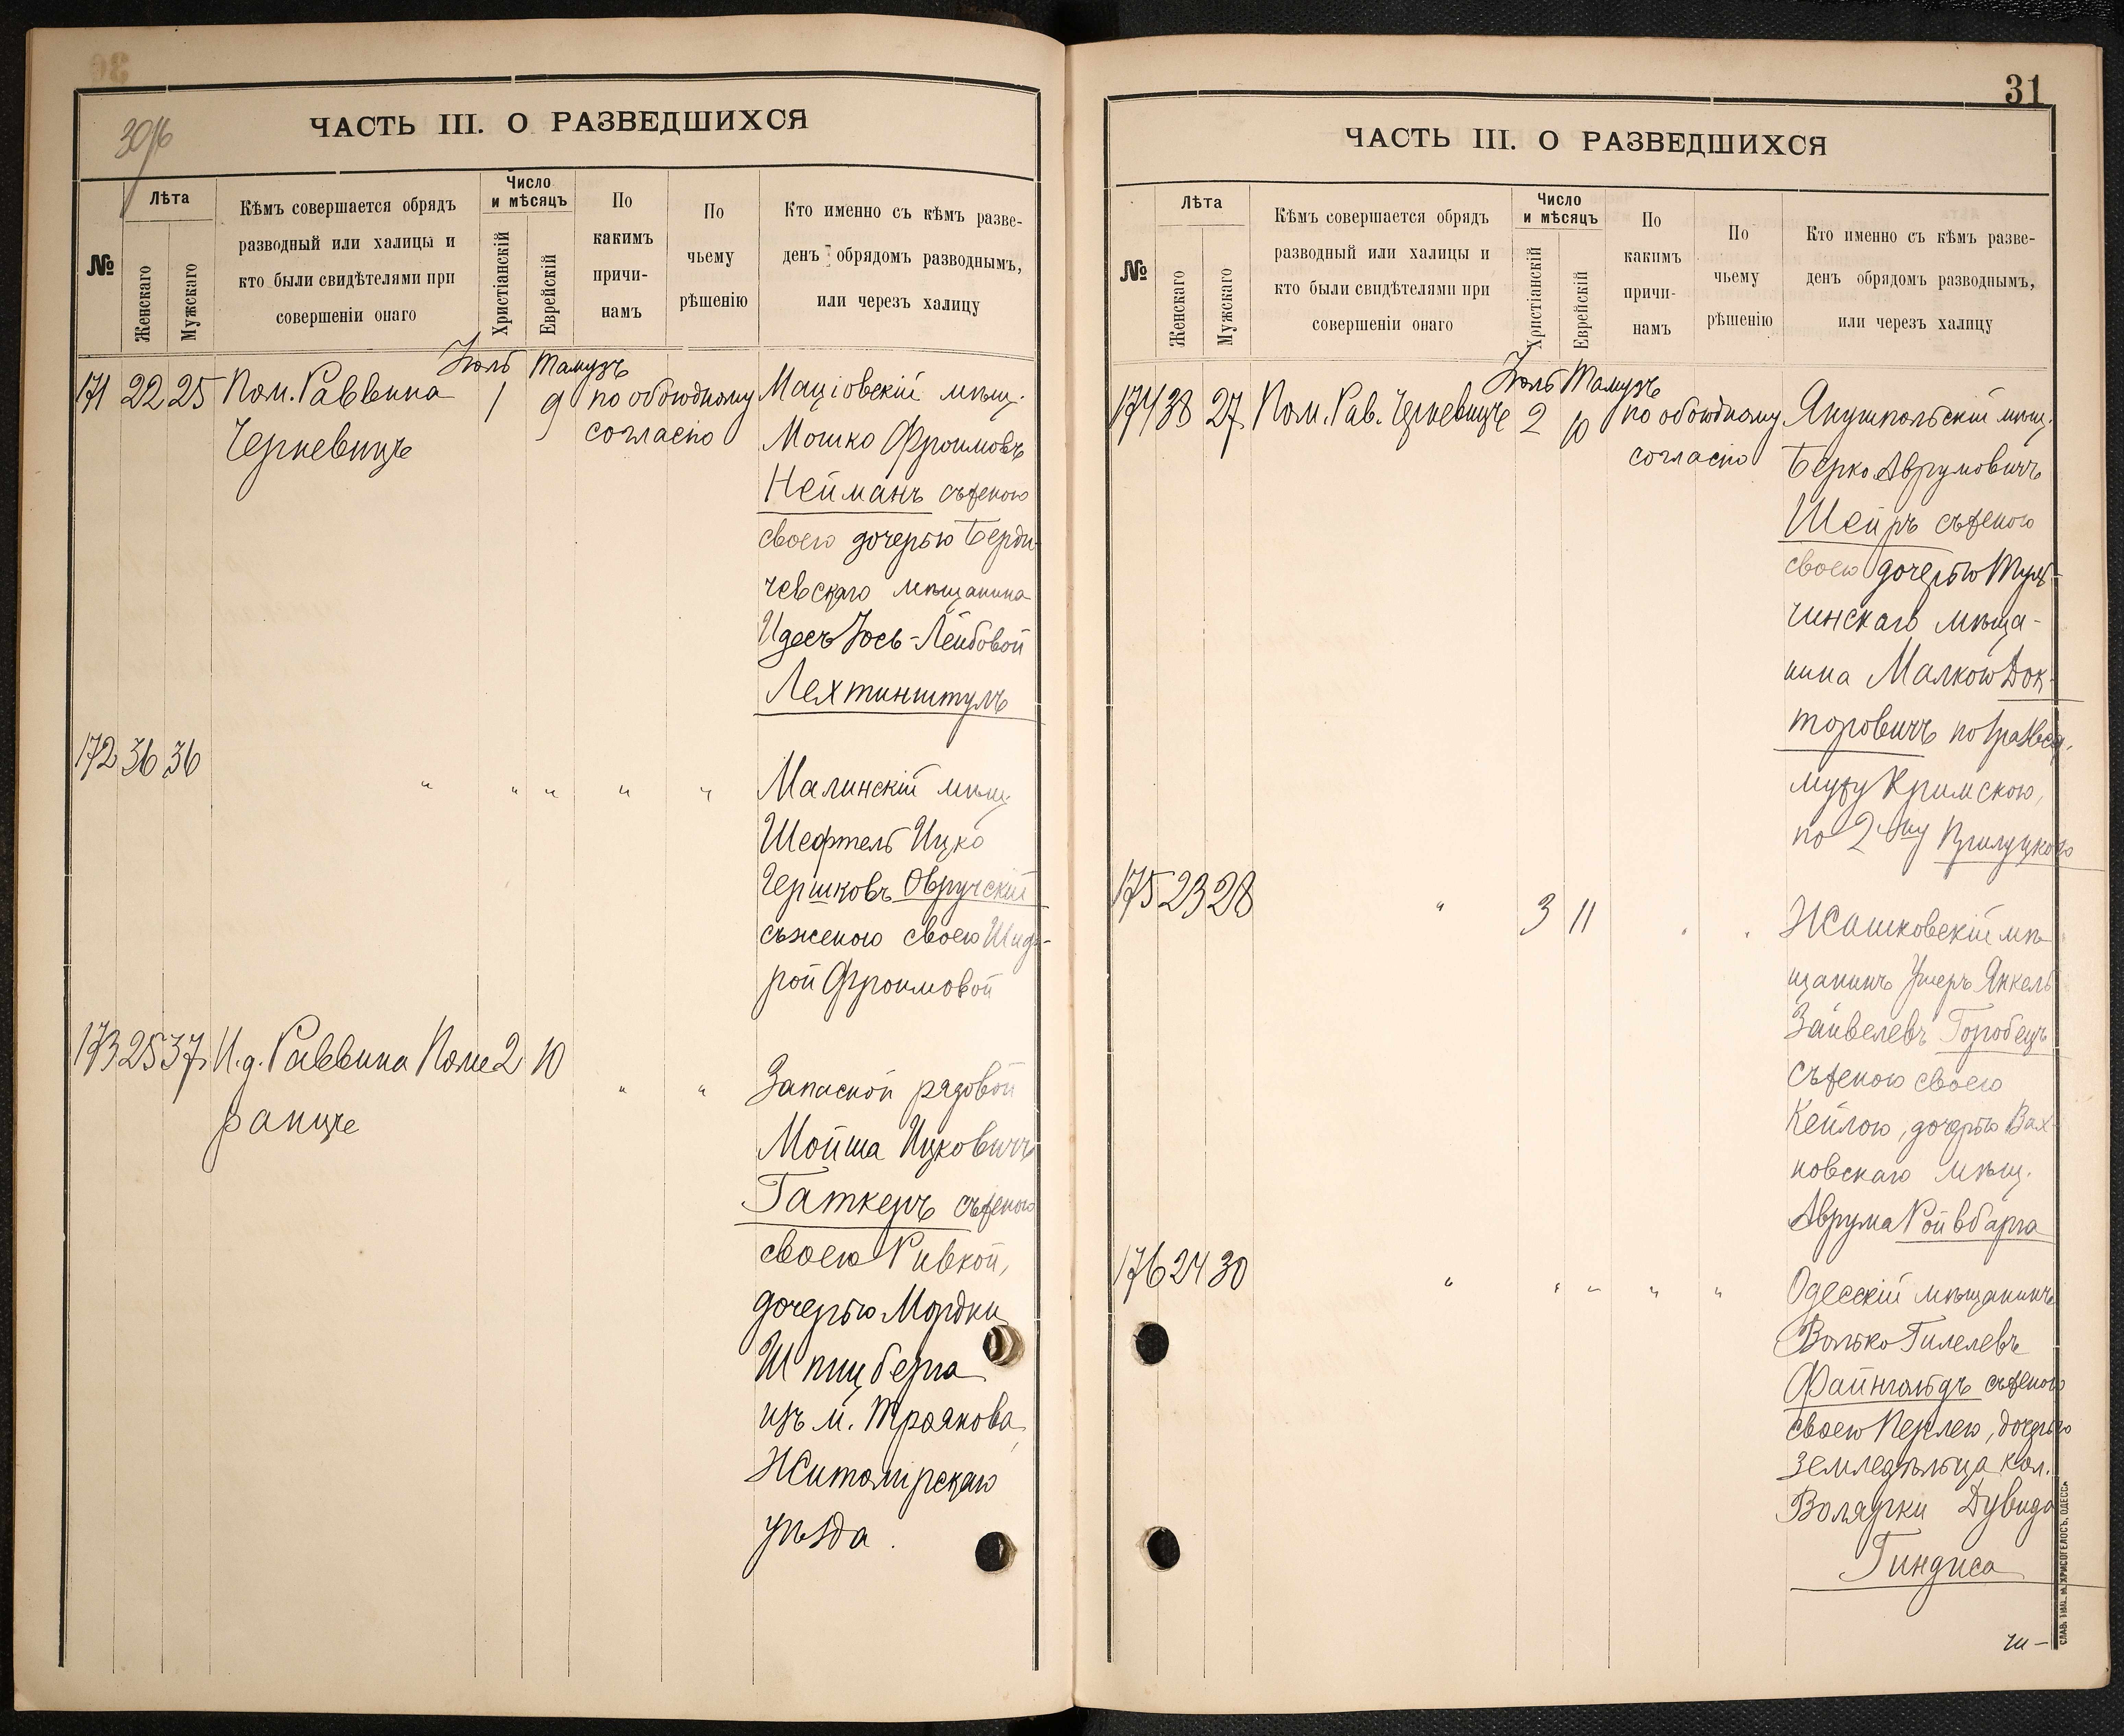 ЧАСТЬ III. О РАЗВЕДШИХСЯ
№
Лѣта
Женскаго
Мужскаго
Кѣмъ совершается обрядъ
разводный или халицы и
кто были свидѣтелями при
совершеніи онаго
Число
и мѣсяцъ
Христіанскій
Еврейскій
По
какимъ
причи-
намъ
По
чьему
рѣшенію
Кто именно съ кѣмъ разве-
денъ обрядомъ разводнымъ,
или черезъ халицу
Іюль Тамузъ
171 22 25 Пом. Раввина 1 9 по обоюдному Маціовскій мѣщ.
Черневицъ согласію Мошко Фроимовъ
Нейманъ съ женою
своею дочерью Берди
чевскаго мѣщанина
Идесъ Іось-Лейбовой
Лехтинштулъ
172 36 36 " " " " " Малинскій мѣщ.
Шефтель Ицко
Гершковъ Овручскій
съ женою своею Шиф-
рой Фроимовой
173 25 37 И. д. Раввина Поме 2 10 " " Запасной рядовой
ранце Мойша Ицковичъ
Гаткеръ съ женою
своею Ривкой,
дочерью Мордки
Шпицберга
изъ м. Троянова,
Житомірскаго
уѣзда.
31
ЧАСТЬ III. О РАЗВЕДШИХСЯ
№
Лѣта
Женскаго
Мужскаго
Кѣмъ совершается обрядъ
разводный или халицы и
кто были свидѣтелями при
совершеніи онаго
Число
и мѣсяцъ
Христіанскій
Еврейскій
По
какимъ
причи-
намъ
По
чьему
рѣшенію
Кто именно съ кѣмъ разве-
денъ обрядомъ разводнымъ,
или черезъ халицу
Іюль Тамузъ
174 38 27 Пом. Рав. Черневицъ 2 10 по обоюдному Янушпольскій мѣщ.
согласію Берко Аврумовичъ
Шейръ съ женою
своею дочерью Туль-
чинскаго мѣща-
нина Малкою Док-
торовичъ по
мужу Кримскою,
по 2-му Прилуцкою
175 23 28 " 3 11 " " Жашковскій мѣ-
щанинъ Ушеръ Янкель
Зайвелевъ Горобецъ
съ женою своею
Кейлою, дочерью Вах-
новскаго мѣщ.
Аврума Ройвбарга
176 24 30 " " " " " Одесскій мѣщанинъ
Волько Гилелевъ
Файнгольдъ съ женою
своею Перлею, дочерью
земледѣльца кол.
Волярки Дувида
Гиндиса
СЛАВ. ТИП. Н. ХРИСОГЕЛОСЪ, ОДЕССА